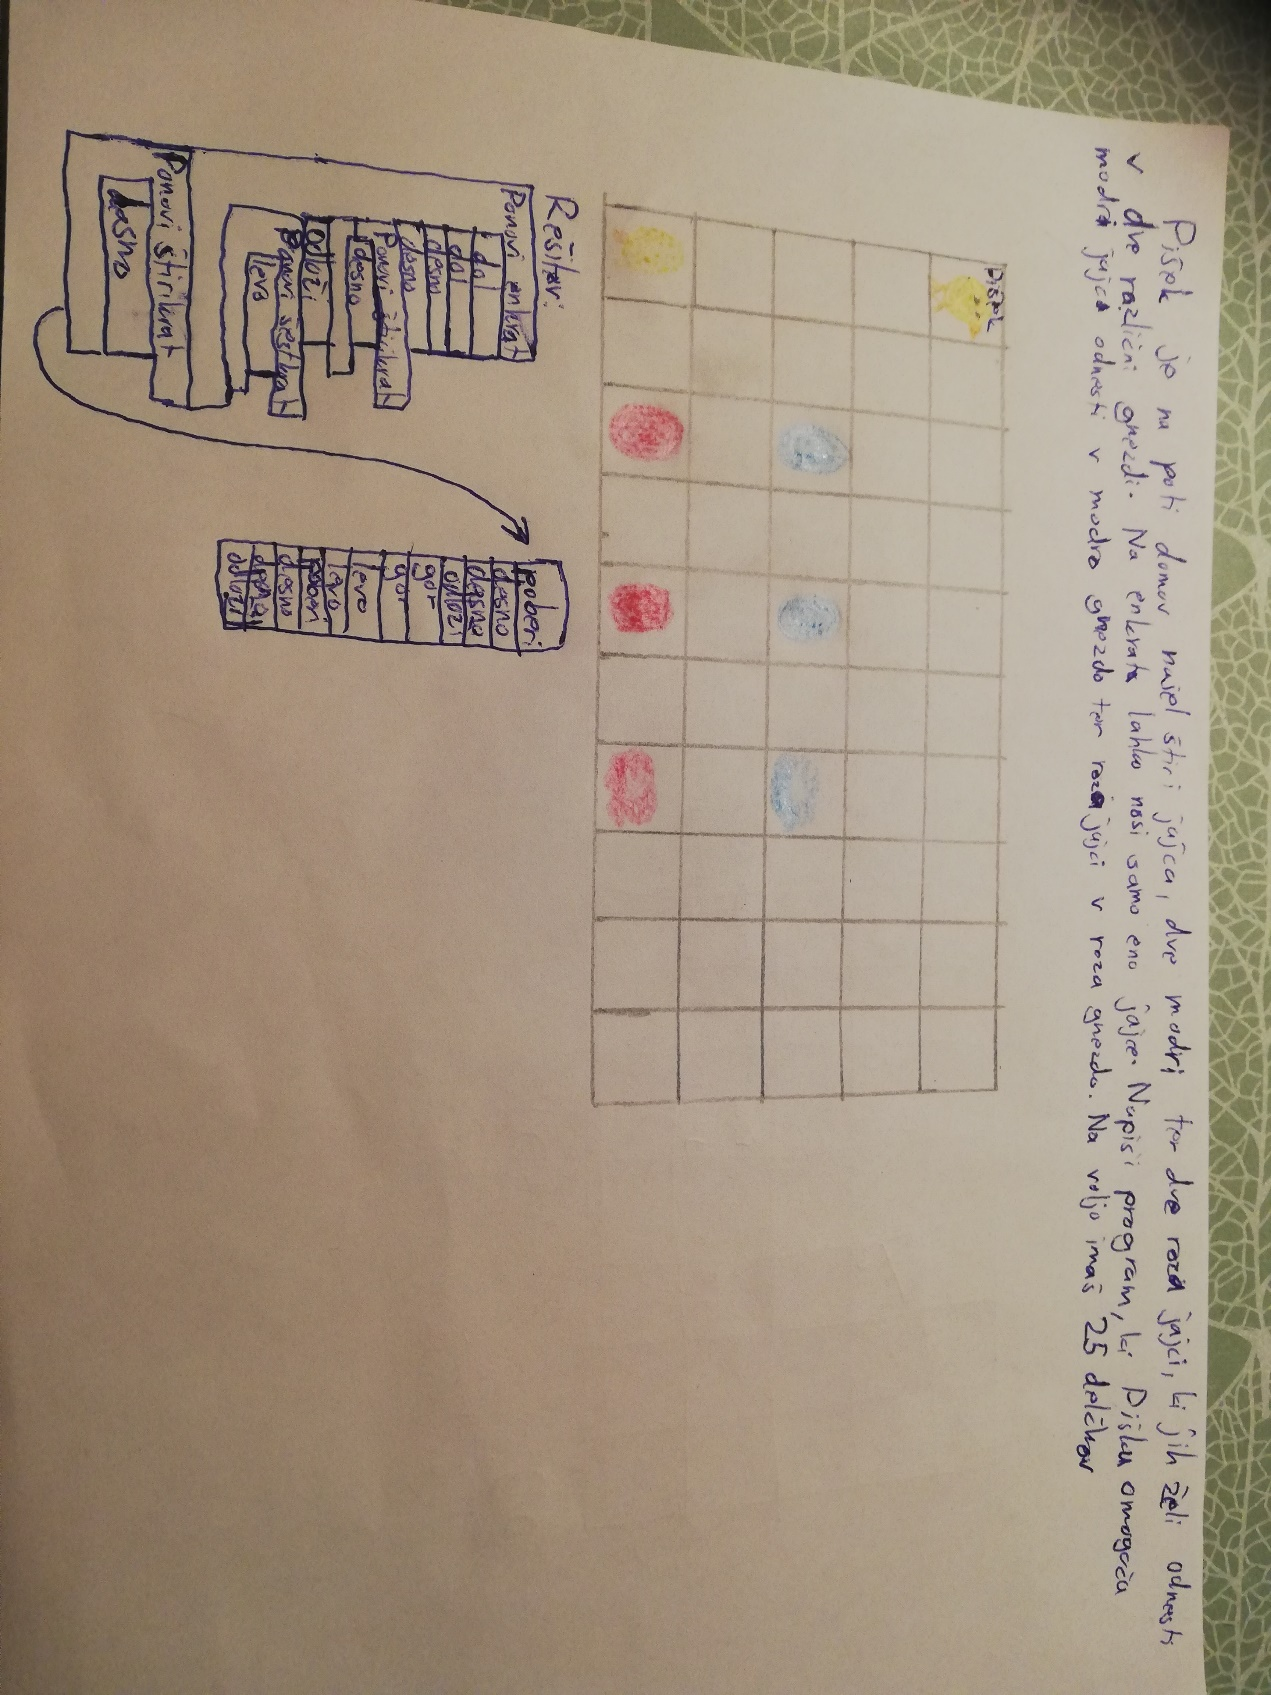 Pišek je na poti domov našel štiri jajca, dve modri ter dve roza jajci, ki jih želi odnesti
v dve različni gnezdi. Na enkrat lahko nosi samo eno jajce. Napiši program, ki Pišku omogoča
modra jajca odnesti v modro gnezdo ter roza jajci v roza gnezdo. Na voljo imaš 25 delčkov
Pišek
Rešitev:
Ponovi enkrat
dol
dol
desno
desno
Ponovi štirikrat
desno
odloži
Ponovi šestkrat
levo
Ponovi štirikrat
desno
poberi
desno
desno
odloži
gor
gor
levo
levo
poberi
desno
desno
odloži